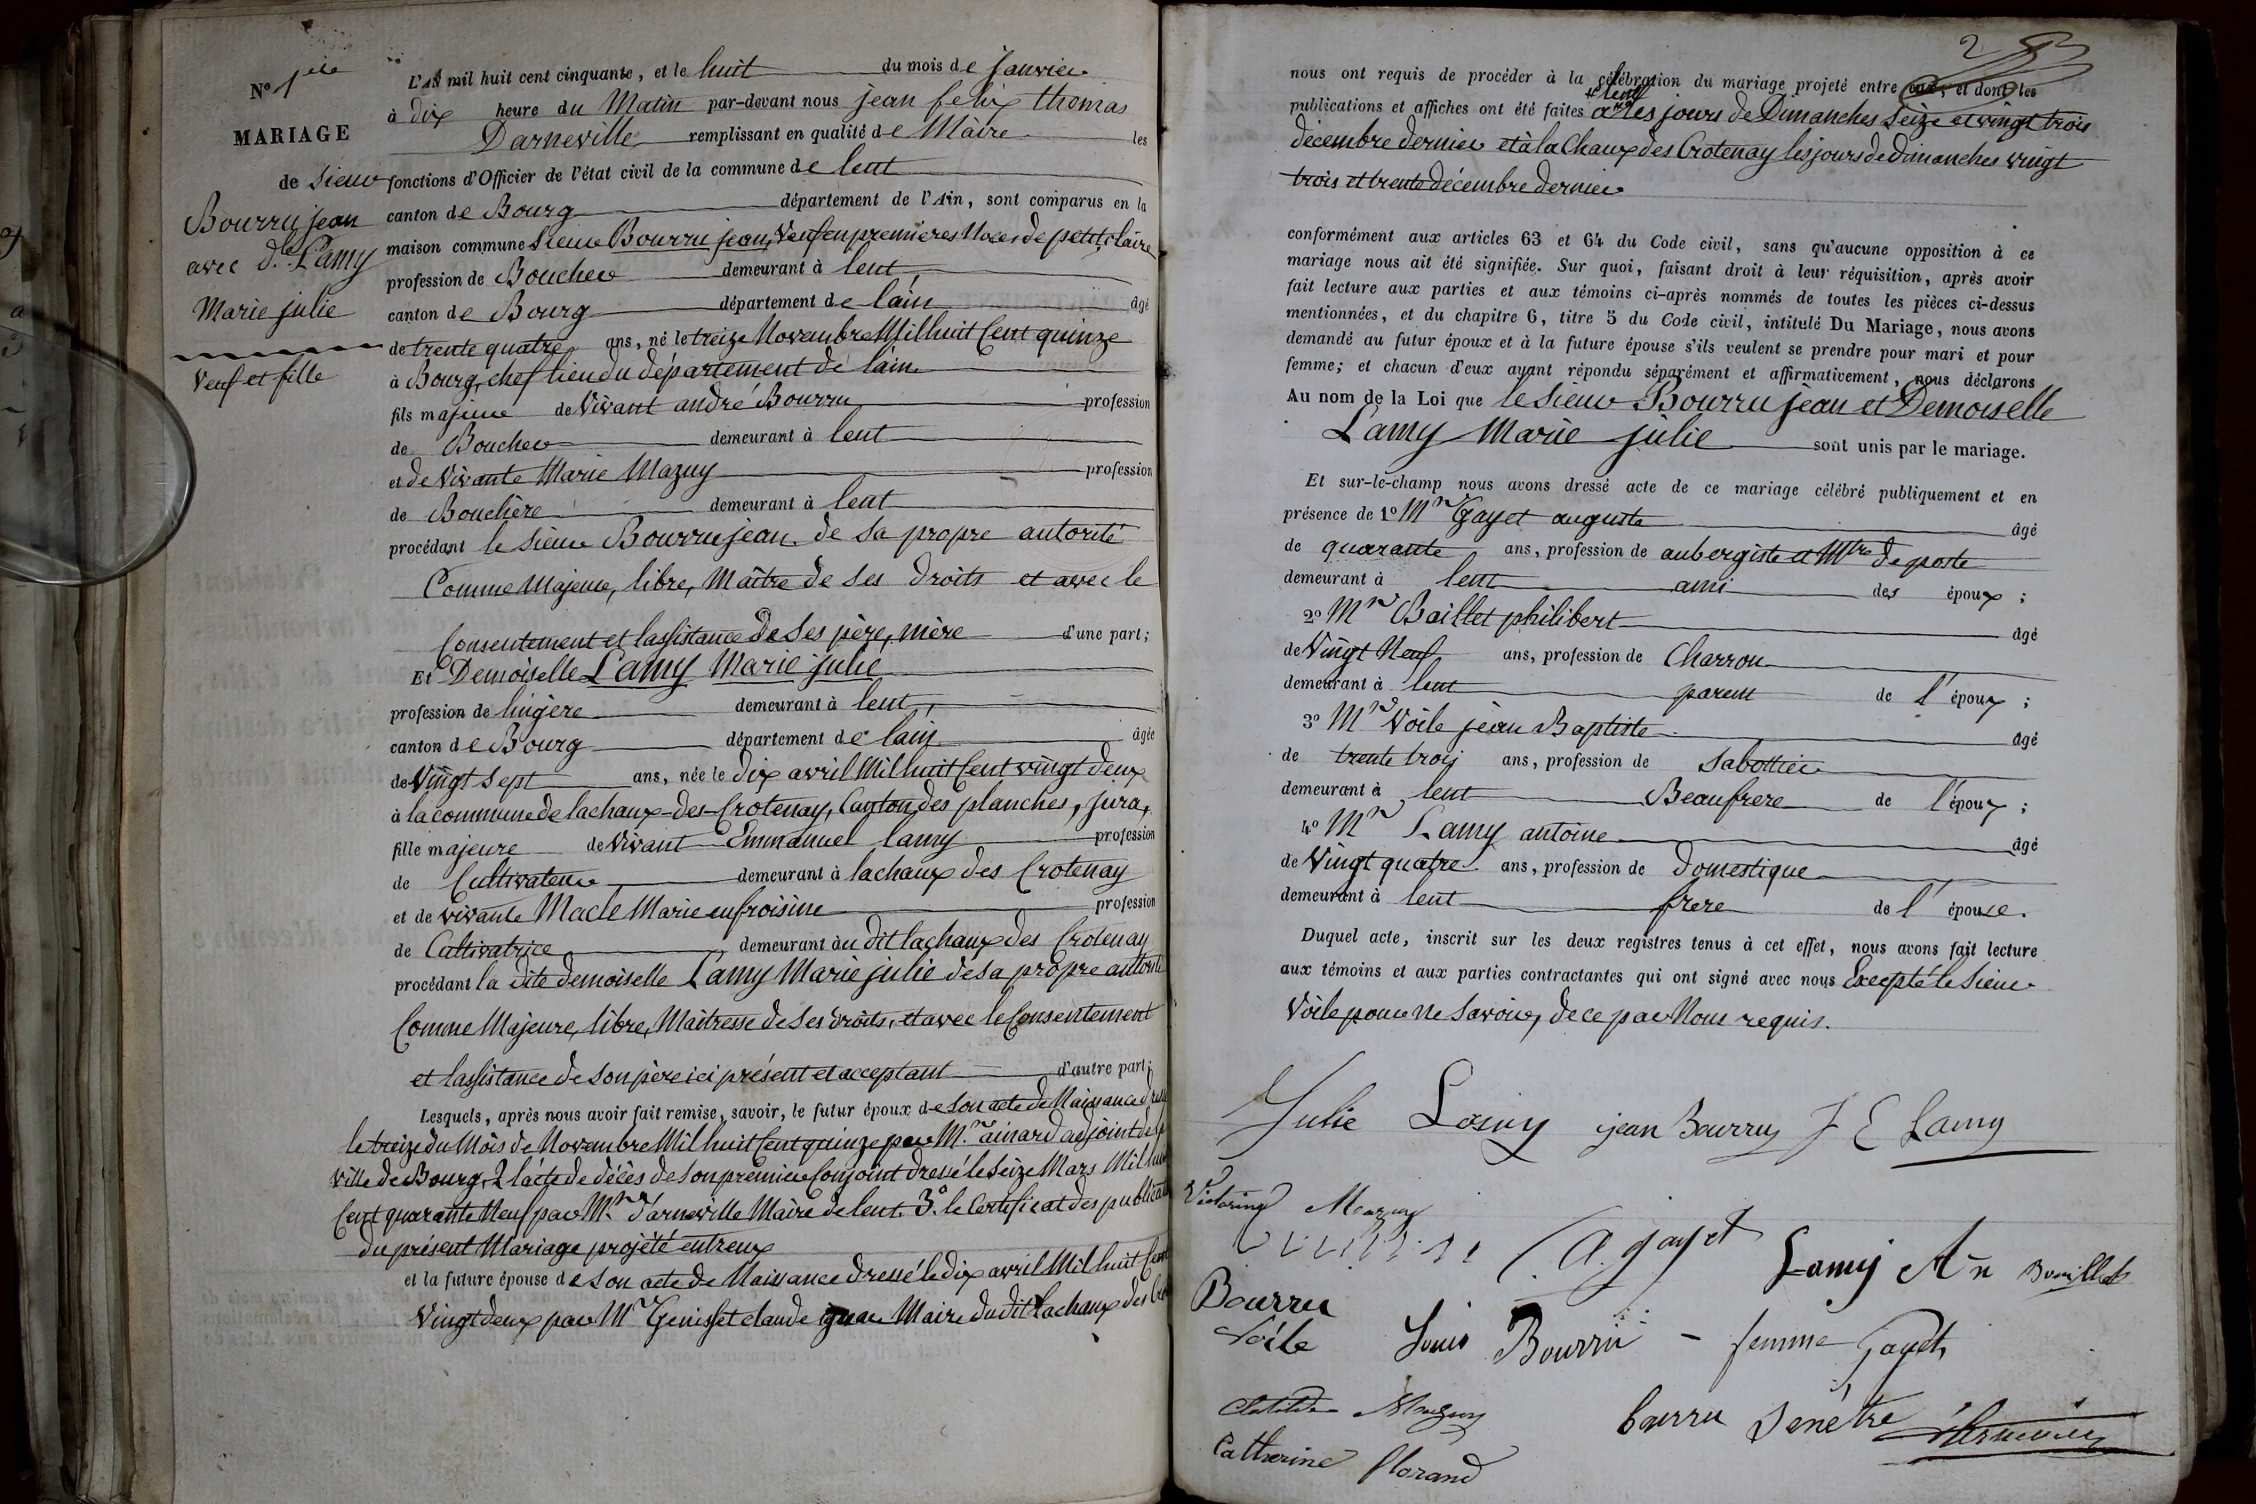 N° 1er
MARIAGE
de Sieur
Bourru jean
avec dlle Lamy
Marie julie
Veuf et fille
L'AN mil huit cent cinquante, et le huit du mois de janvier
à dix heure du Matin par-devant nous jean felix thomas
Darneville remplissant en qualité de Maire les
fonctions d'Officier de l'état civil de la commune de lent
canton de Bourg département de l'Ain, sont comparus en la
maison commune Sieur Bourru jean, Veuf en premières Noces de petit, claire
profession de Boucher demeurant à lent,
canton de Bourg département de lain âgé
de trente quatre ans, né le treize Novembre Mil huit Cent quinze
à Bourg, chef lieu du département de lain
fils majeur de Vivant andré Bourru profession
de Boucher demeurant à lent
et de Vivante Marie Mazuy profession
de Bouchère demeurant à lent
procédant le Sieur Bourru jean de Sa propre autorité
Comme Majeur, libre, Maître de Ses Droits et avec le
Consentement et lassistance de Ses père, mère d'une part;
Et Demoiselle Lamy Marie julie
profession de lingère demeurant à lent,
canton de Bourg département de lain âgée
de Vingt Sept ans, née le Dix avril Mil huit Cent vingt deux
à la commune de lachaux-des-Crotenay, Canton des planches, jura,
fille majeure de Vivant Emmanuel lamy profession
de Cultivateur demeurant à lachaux des Crotenay
et de vivante Macle Marie eufroisine profession
de Cultivatrice demeurant àu dit lachaux des Crotenay
procédant la dite demoiselle Lamy Marie julie de sa propre autorité
Comme Majeure, libre, Maîtresse de Ses droits, et avec le Consentement
et lassistance de Son père ici présent et acceptant d'autre part;
Lesquels, après nous avoir fait remise, savoir, le futur époux de Son acte de Naissance
le treize du Mois de Novembre Mil huit Cent quinze par Mr. ainard adjoint de la
Ville de Bourg, 2 lacte de décès de Son premier Conjoint dressé le Seize Mars Mil huit
Cent quarante Neuf par Mr. Darneville Maire de lent. 3.° le Certificat des
du présent Mariage projété entreux
et la future épouse de Son acte de Naissance dressé le dix avril Mil huit Cent
Vingt deux par Mr Genisset claude Maire du dit lachaux des
2
nous ont requis de procéder à la célébration du mariage projeté entre eux, et dont les
à lent
publications et affiches ont été faites les jours de Dimanches Seize et vingt trois
décembre dernier et à la Chaux des Crotenay les jours de dimanches vingt
trois et trente décembre dernier
conformément aux articles 63 et 64 du Code civil, sans qu'aucune opposition à ce
mariage nous ait été signifiée. Sur quoi, faisant droit à leur réquisition, après avoir
fait lecture aux parties et aux témoins ci-après nommés de toutes les pièces ci-dessus
mentionnées, et du chapitre 6, titre 5 du Code civil, intitulé Du Mariage, nous avons
demandé au futur époux et à la future épouse s'ils veulent se prendre pour mari et pour
femme; et chacun d'eux ayant répondu séparément et affirmativement, nous déclarons
Au nom de la Loi que le Sieur Bourru jean et Demoiselle
Lamy Marie julie sont unis par le mariage.
Et sur-le-champ nous avons dressé acte de ce mariage célébré publiquement et en
présence de 1° Mr Gayet auguste âgé
de quarante ans, profession de aubergiste et Mtre de poste
demeurant à lent ami des époux;
2° Mr Baillet philibert âgé
de Vingt Neuf ans, profession de Charron
demeurant à lent parent de l'époux;
3° Mr Voile jean Baptiste âgé
de trente trois ans, profession de Sabottier
demeurant à lent Beaufrere de l'époux;
4° Mr Lamy antoine âgé
de Vingt quatre ans, profession de Domestique
demeurant à lent frere de l'épouse.
Duquel acte, inscrit sur les deux registres tenus à cet effet, nous avons fait lecture
aux témoins et aux parties contractantes qui ont signé avec nous Excepté le Sieur
Voile pour ne Savoir, de ce par Nous requis.
Julie Lamy jean Bourru J E Lamy
Victorine Mazuy
A. gayet Lamy An Baillet
Bourru
Voile Louis Bourru - femme Gayet
Clotilde Mazuy bourru
Catherine Morand